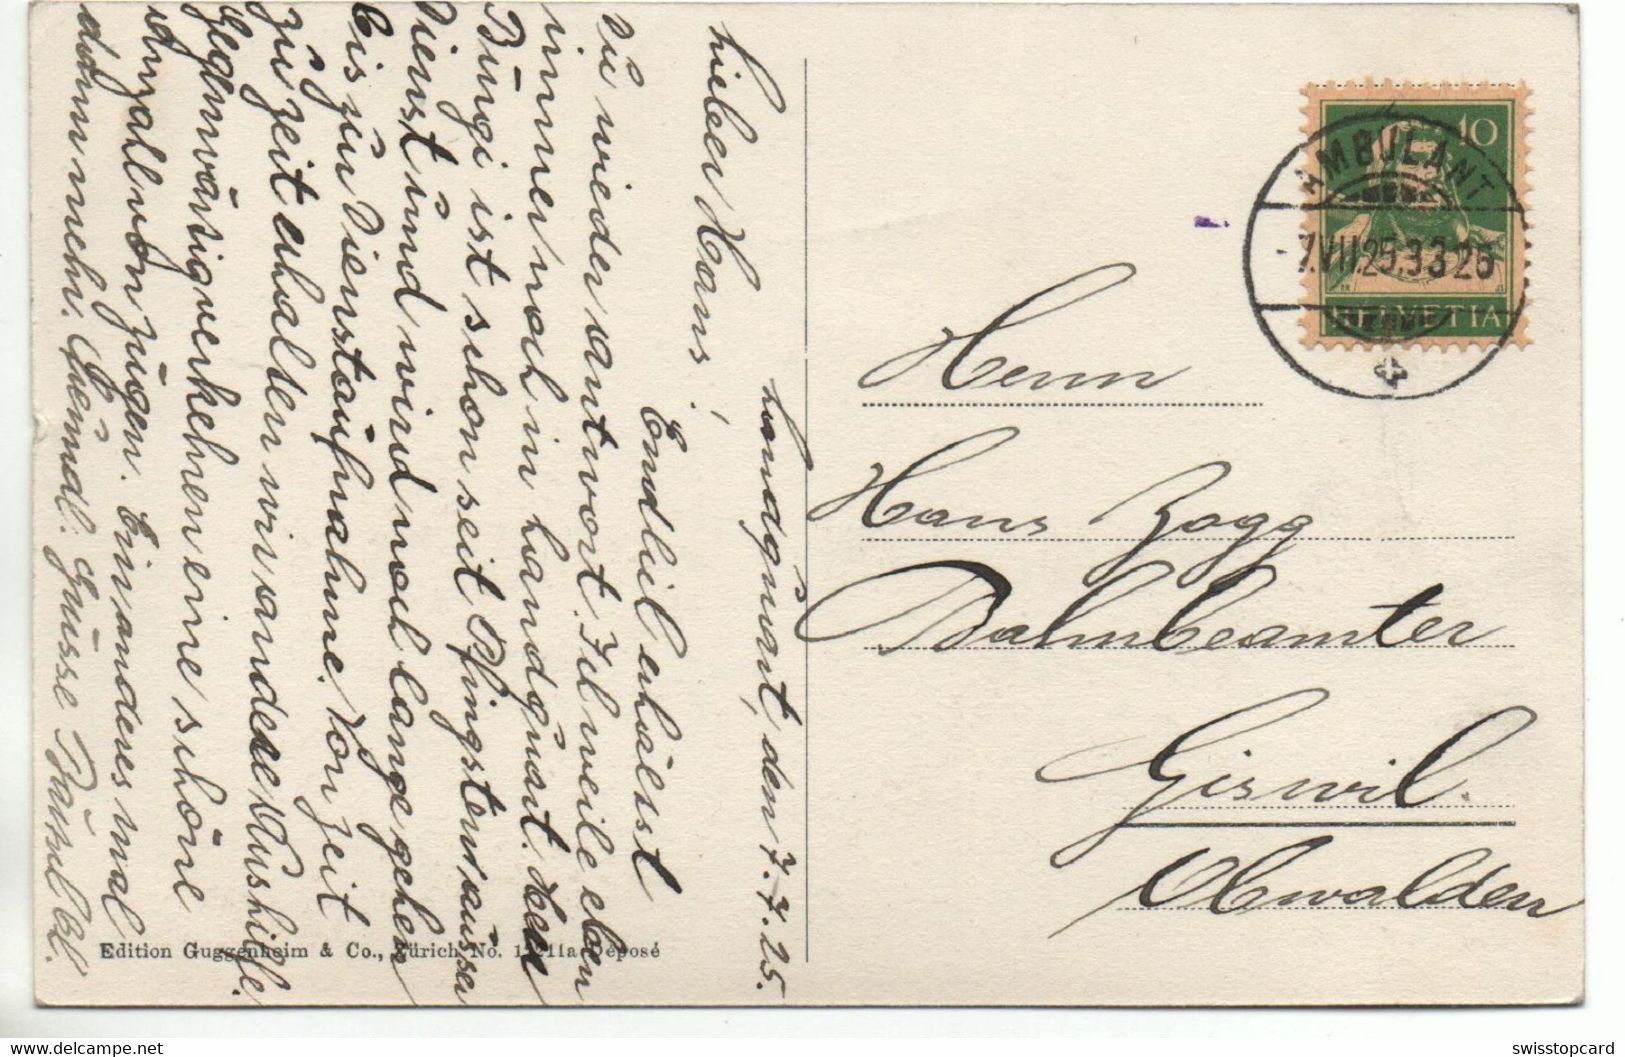 Landquart, den 7.7.25.
Lieber Hans!
Endlich erhälst
Du wieder antwort. Ich weile eben
immer noch in Landquart. Herr
Bürgi ist schon seit Pfingsten ausser
Dienst und wird noch lange gehen
bis zur Dienstaufnahme. Von Zeit
zu Zeit erhalten wir andere Aushilfe.
Gegenwärtig verkehren eine schöne
Anzahl von Zügen. Ein anderes mal
dann mehr. Freundl. Grüsse
Herrn
Hans Zogg
Bahnbeamter
Giswil.
Obwalden
AMBULANT
7.VII.25. 3326
10
HELVETIA
Edition Guggenheim & Co., Zürich No. Déposé
WWW.DELCAMPE.NET
swisstopcard